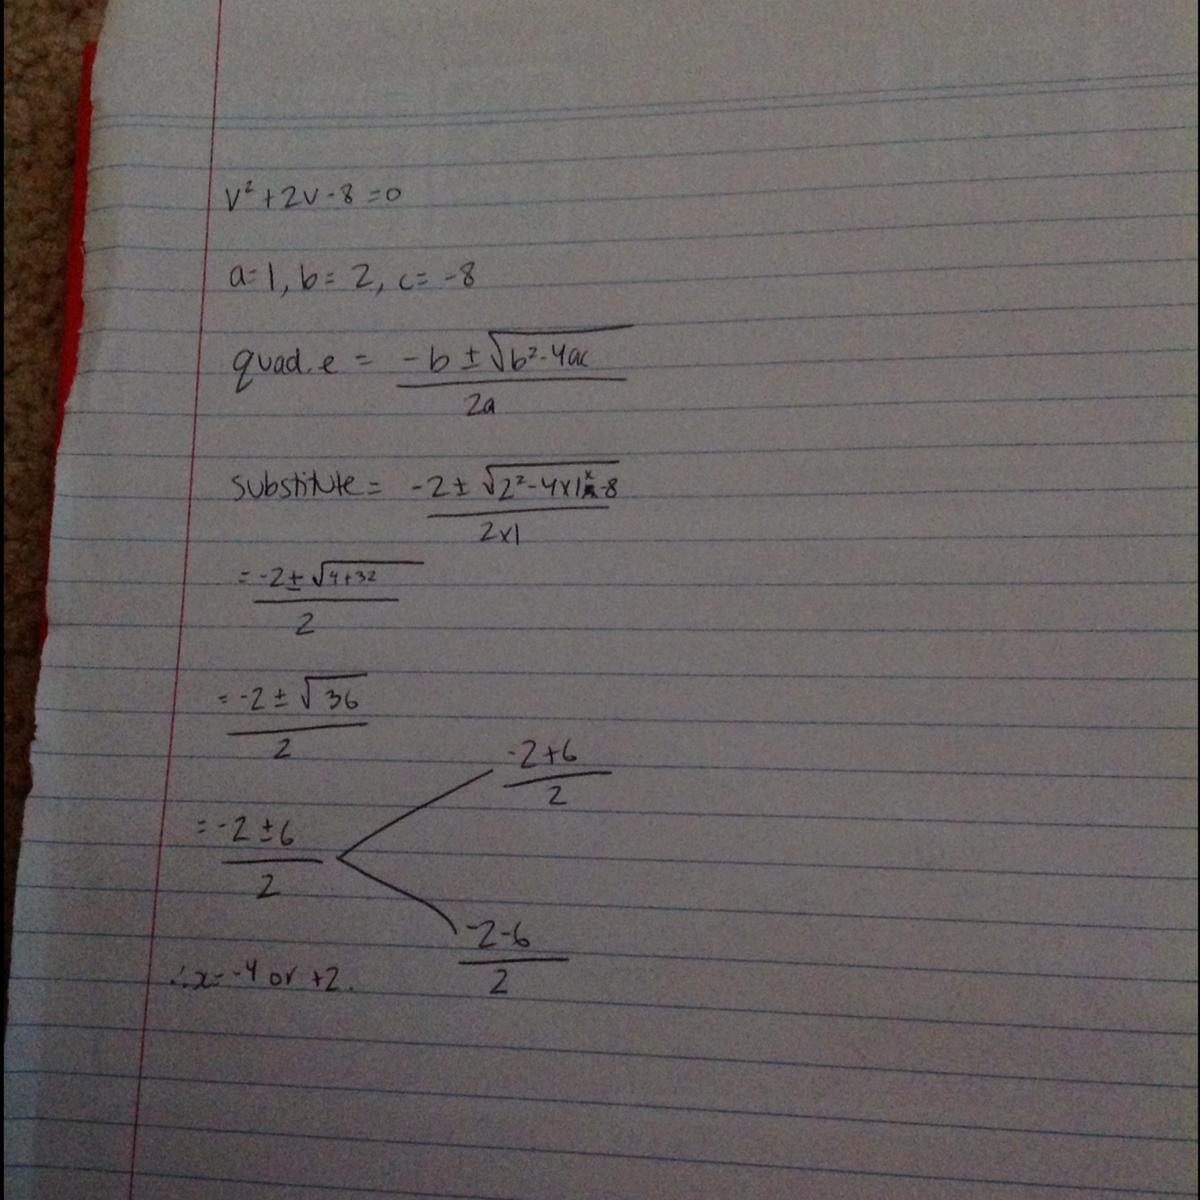 v² + 2v - 8 = 0
a=1, b= 2, c= -8
quad. e = -b ± √b²-4ac
2a
substitute = -2 ± √2²-4x1x-8
2x1
= -2 ± √4+32
2
= -2 ± √36
2
-2+6
2
= -2 ± 6
2
-2-6
2
∴ x= -4 or +2.